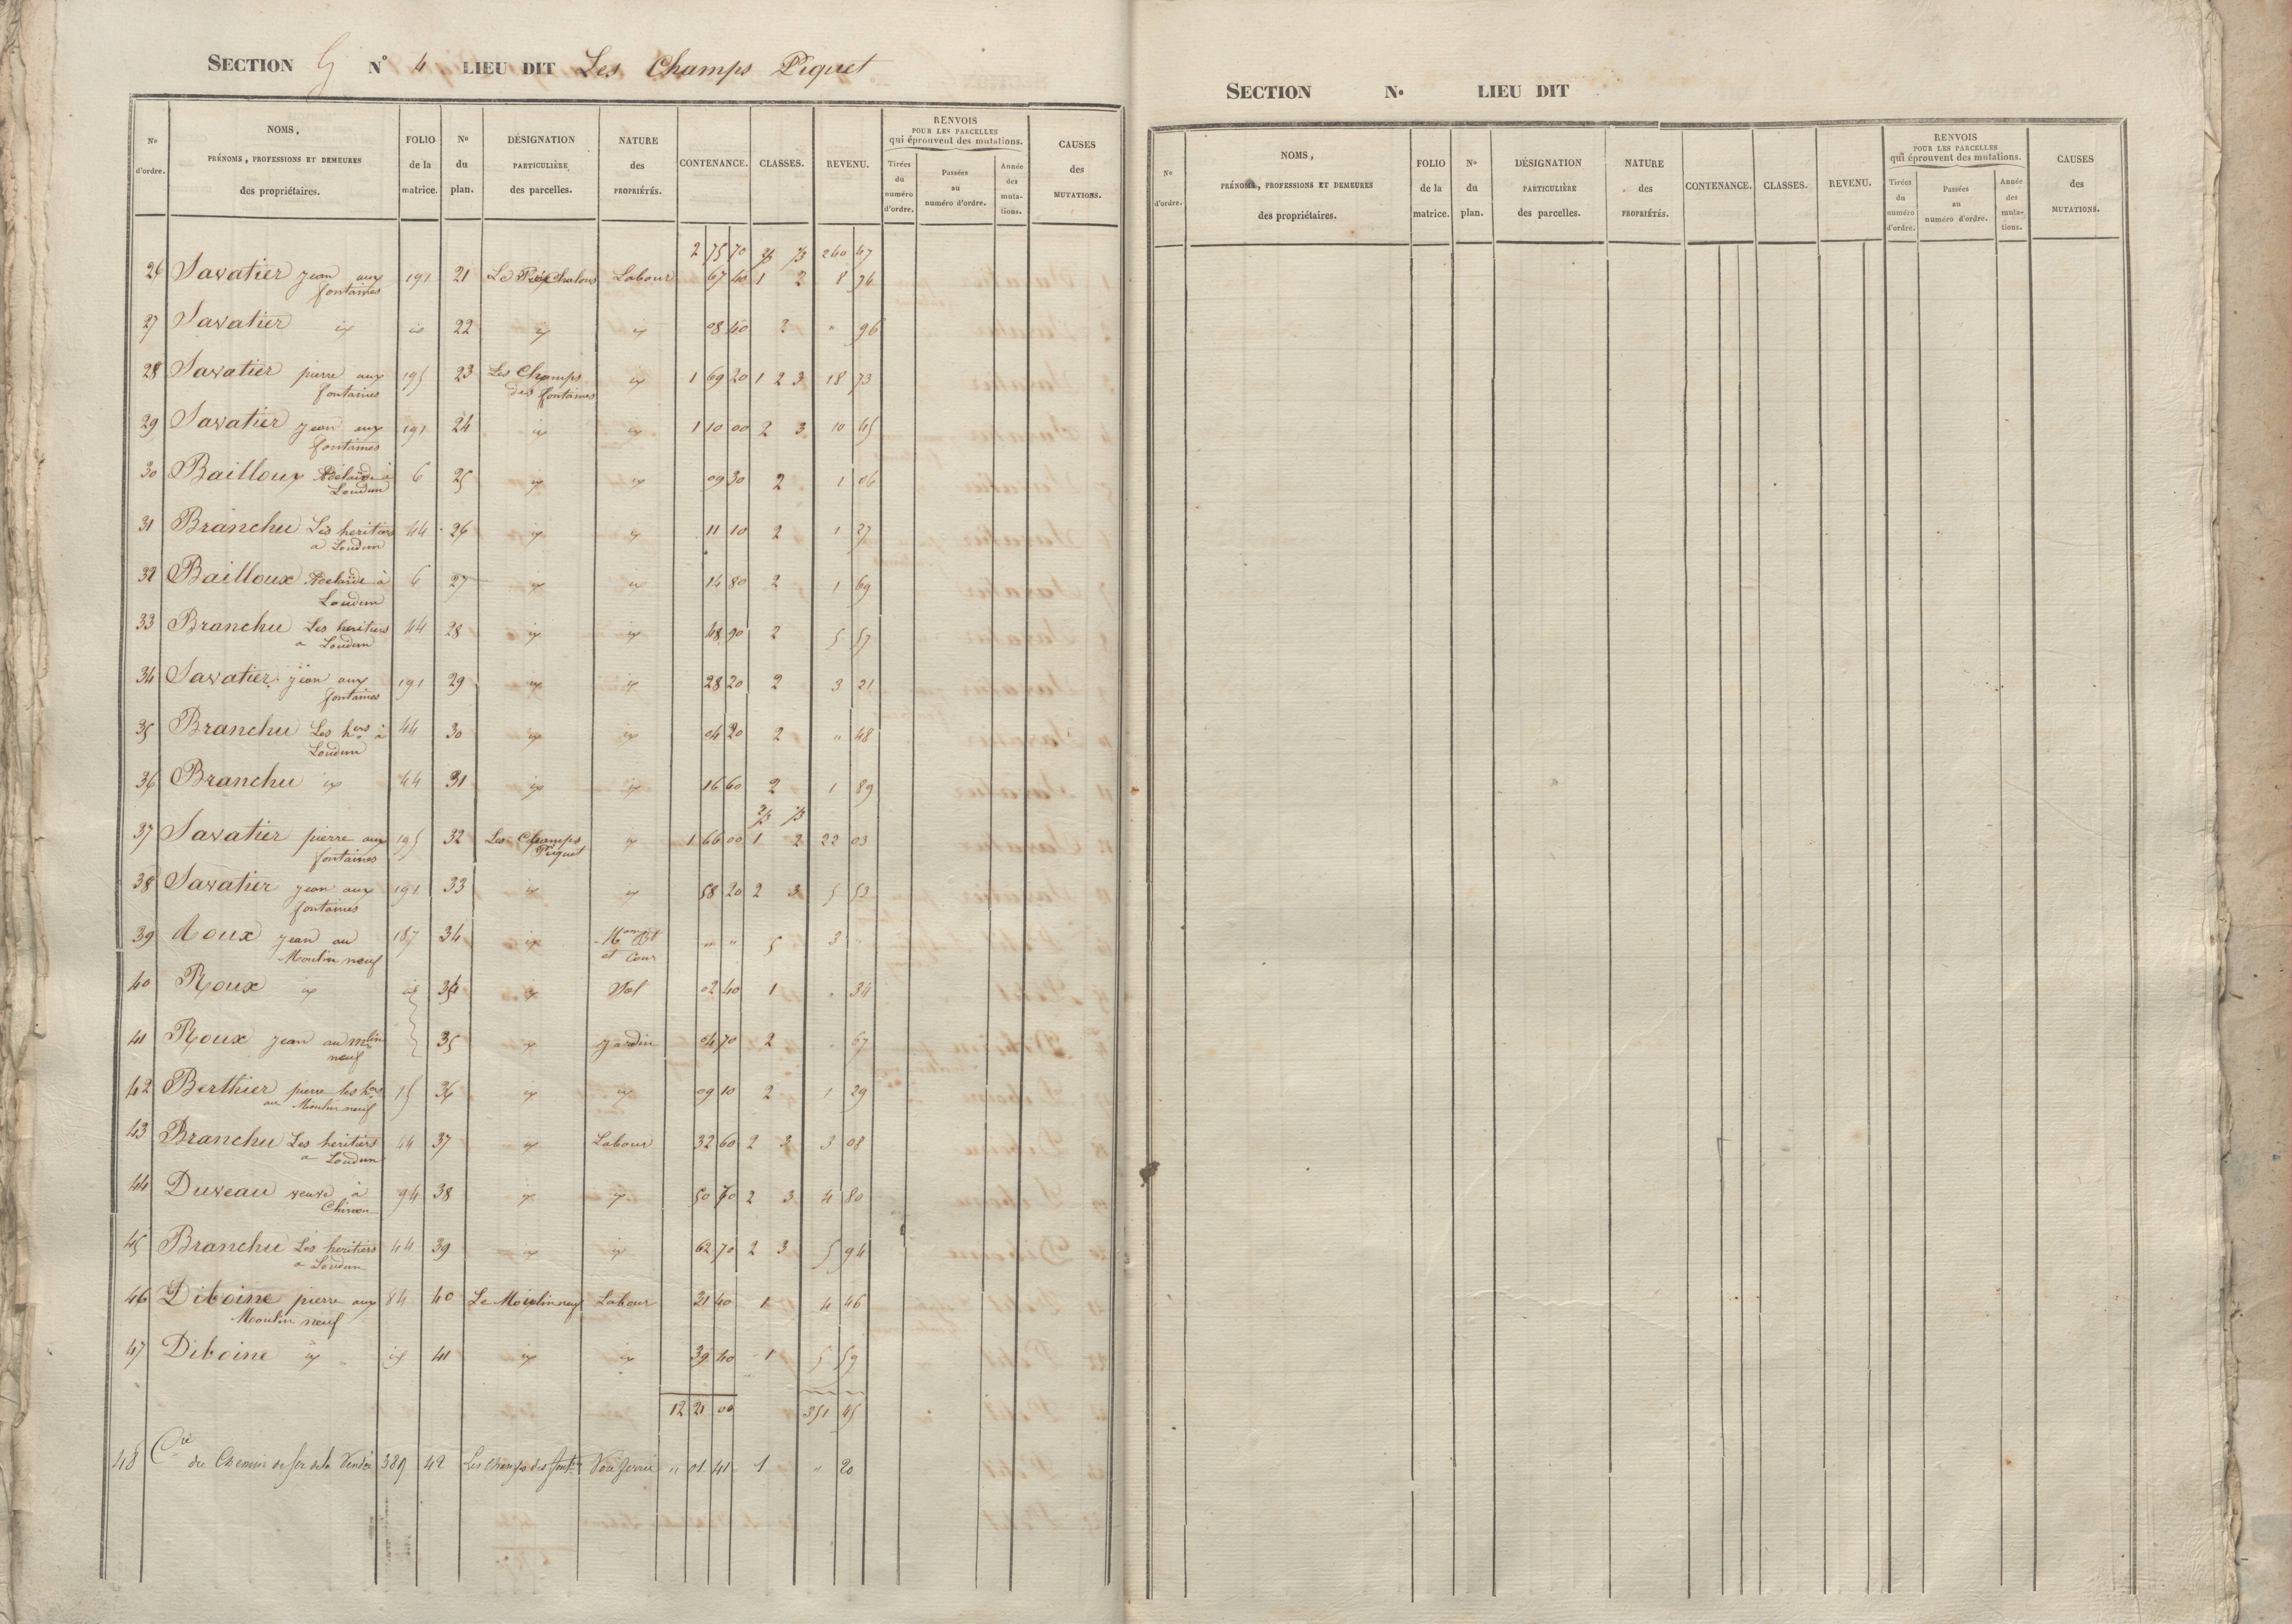 SECTION G N° 4 LIEU DIT Les Champs Piquet
N° d'ordre. NOMS, PRÉNOMS, PROFESSIONS ET DEMEURES des propriétaires. FOLIO de la matrice. N° du plan. DÉSIGNATION PARTICULIÈRE des parcelles. NATURE des PROPRIÉTÉS. CONTENANCE. CLASSES. REVENU. RENVOIS POUR LES PARCELLES qui éprouvent des mutations. Tirées du numéro d'ordre. Passées au numéro d'ordre. Année des mutations. CAUSES des MUTATIONS.
2 75 70 2/3 1/3 260 47
26 Savatier jean aux fontaines 191 21 Le Chalons Labour 67 40 1 2 8 94
27 Savatier id id 22 id id 08 40 2 " 96
28 Savatier pierre aux fontaines 195 23 Les Champs des fontaines id 1 69 20 1 2 3 18 73
29 Savatier jean aux fontaines 191 24 id id 1 10 00 2 3 10 45
30 Bailloux Adelaïde à Loudun 6 25 id id 09 30 2 1 06
31 Branchu Les heritiers a Loudun 44 26 id id 11 10 2 1 27
32 Bailloux Adelaïde à Loudun 6 27 id id 14 80 2 1 69
33 Branchu Les heritiers a Loudun 44 28 id id 48 90 2 5 57
34 Savatier jean aux fontaines 191 29 id id 28 20 2 3 21
35 Branchu Les hers à Loudun 44 30 id id 04 20 2 " 48
36 Branchu id 44 31 id id 16 60 2 1 89
2/3 1/3
37 Savatier pierre aux fontaines 195 32 Les Champs Piquet id 1 66 00 1 2 22 03
38 Savatier jean aux fontaines 191 33 id id 58 20 2 3 5 53
39 Roux jean au Moulin neuf 187 34 id Mon Bt et Cour " " 5 3 "
40 Roux id id 34 id Sol 02 40 1 " 34
41 Roux jean au mlin neuf 35 id jardin 04 70 2 " 67
42 Berthier pierre les hers au Moulin neuf 15 36 id id 09 10 2 1 29
43 Branchu Les heritiers a Loudun 44 37 id Labour 32 60 2 3 3 08
44 Duveau veuve à Chinon 94 38 id id 50 70 2 3 4 80
45 Branchu Les heritiers a Loudun 44 39 id id 62 70 2 3 5 94
46 Diboine pierre aux Moulin neuf 84 40 Le Moulin neuf Labour 31 40 1 4 46
47 Diboine id id 41 id id 39 40 1 5 59
12 21 00 351 45
48 Cie du Chemin de fer de la Vendée 389 42 Les Champs des font. Voie ferrée " 01 41 1 " 20
SECTION N° LIEU DIT
N° d'ordre. NOMS, PRÉNOMS, PROFESSIONS ET DEMEURES des propriétaires. FOLIO de la matrice. N° du plan. DÉSIGNATION PARTICULIÈRE des parcelles. NATURE des PROPRIÉTÉS. CONTENANCE. CLASSES. REVENU. RENVOIS POUR LES PARCELLES qui éprouvent des mutations. Tirées du numéro d'ordre. Passées au numéro d'ordre. Année des mutations. CAUSES des MUTATIONS.